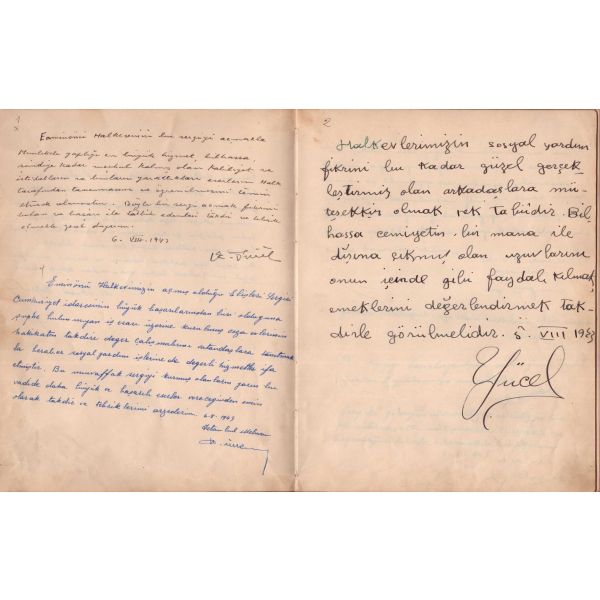 1
x
Eminönü Halkevinin bu sergiyi açmakla
Muhitte yaptığı en büyük hizmet, bilhassa,
şimdiye kadar meçhul kalmış olan kabiliyet ve
istidatların ve bunların yarattıkları eserlerin Halk
tarafından tanınması ve öğrenilmesini temin
etmek olmuştur. Böyle bir sergi açmak fikrini
bulan ve başarı ile tatbik edenleri takdir ve tebrik
etmekle zevk duyarım.
6. VIII. 1943
Eminönü Halkevimizin açmış olduğu Elişleri Sergisi
Cumhuriyet idaresinin büyük başarılarından biri olduğuna
şüphe bulunmıyan iş esası üzerine kurulmuş ceza evlerinin
hakikaten takdire değer çalışmalarını vatandaşlara tanıtmakla
beraber sosyal yardım işlerine de değerli hizmette ifa
etmiştir. Bu muvaffak sergiyi kurmuş olanların yarın bu
vadide daha büyük ve başarılı eserler vereceğinden emin
olarak takdir ve tebriklerimi arzederim. 6.8.1943
2
Halkevlerimizin sosyal yardım
fikrini bu kadar güzel gerçek-
leştirmiş olan arkadaşlara mü-
teşekkir olmak pek tabiidir. Bil-
hassa cemiyetin bir mana ile
dışına çıkmış olan uzuvlarını
onun içinde gibi faydalı kılmak
emeklerini değerlendirmek tak-
dirle görülmelidir. 6. VIII 1943
Yücel